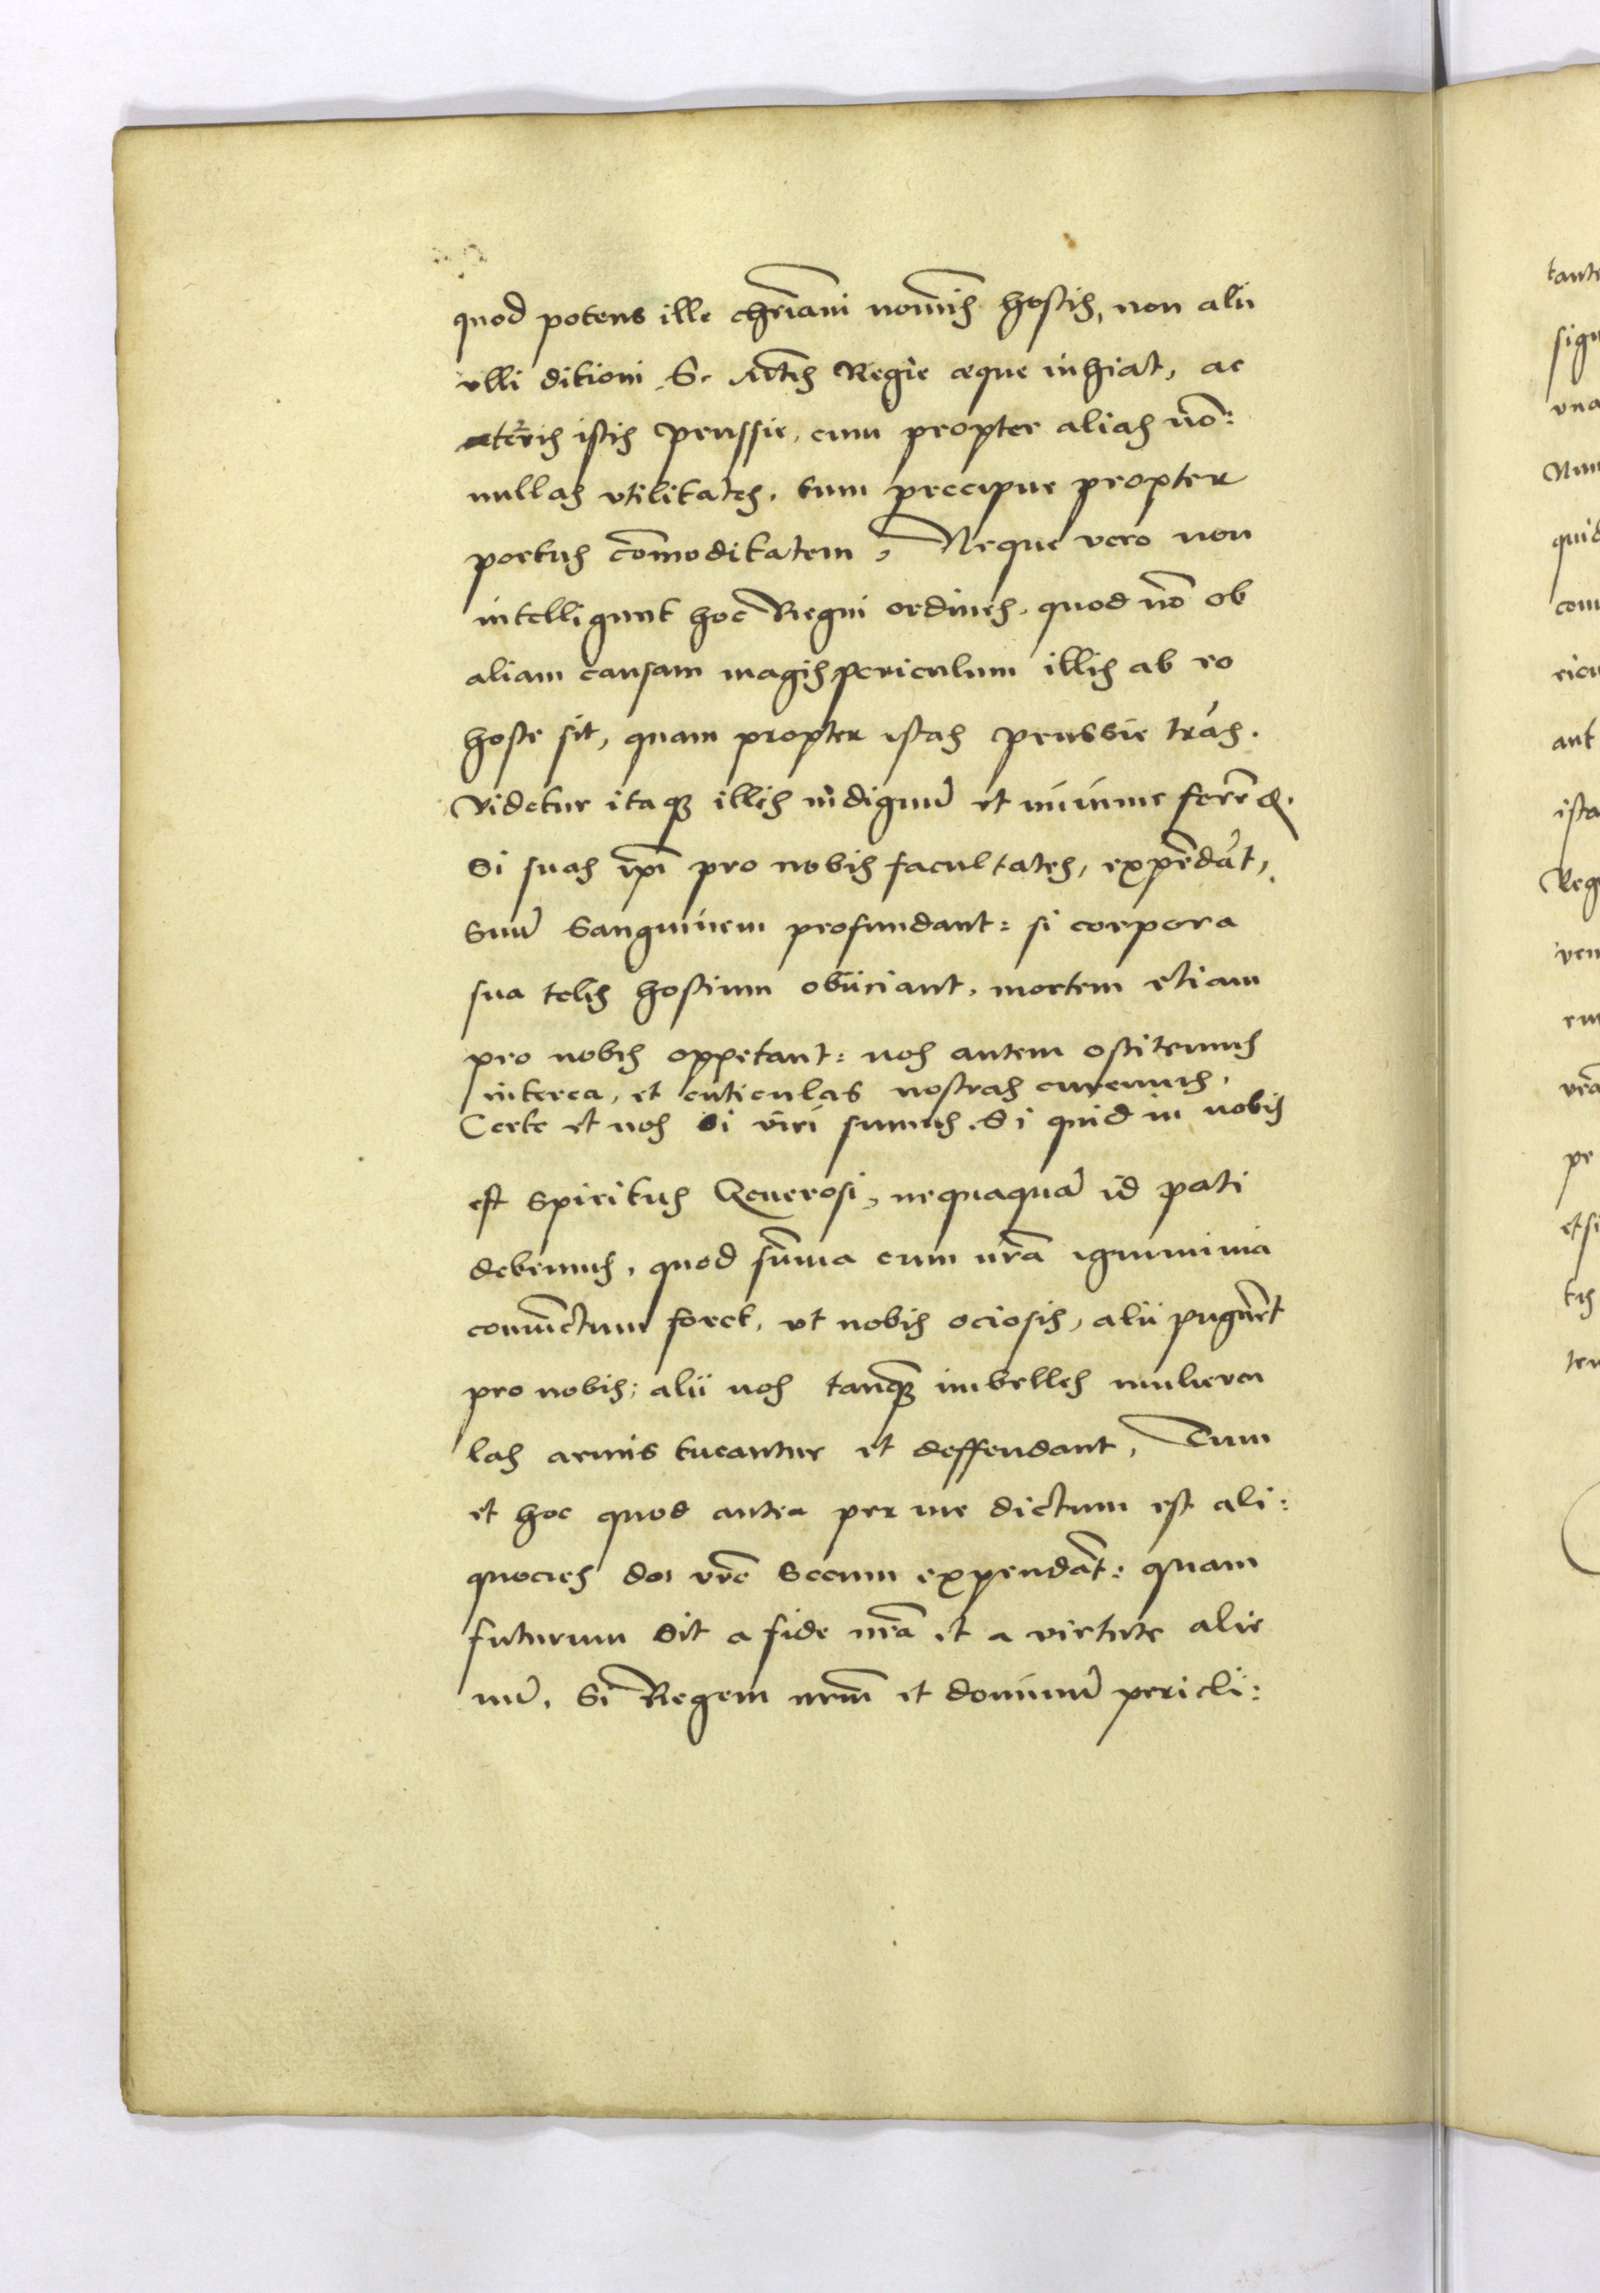 quod potens ille chr̄iani nom̄is hostis, non alii
vlli ditioni S. M̄tis Regie æque inhiat, ac
terris istis Prussie, cum propter alias nō:
nullas vtilitates, tum precipue propter
portus cōmoditatem, Neque vero non
intelligunt hoc Regni ordines, quod nō ob
aliam causam magis periculum illis ab eo
hoste sit, quam propter istas prussie trās.
Videtur itaqȝ illis indignū et minime ferēd.
Si suas ip̄i pro nobis facultates, expēdāt,
Suū Sanguinem profundant: si corpora
sua telis hostium obiiciant, mortem etiam
pro nobis oppetant: nos autem oscitemus
interea, et cuticulas nostras curemus,
Certe et nos si viri sumus. Si quid in nobis
est Spiritus Generosi, nequaquā id pati
debemus, quod sūma cum nr̄a ignominia
coniūctum foret, vt nobis ociosis, alii pugnēt
pro nobis; alii nos tanqȝ imbelles muliercu
las armis tueantur et deffendant, Tum
et hoc quod antea per me dictum est ali:
quocies do. vr̄e Secum expendāt: quam
futurum Sit a fide nr̄a et a virtute alie
nū, Si Regem nrm̄ et dominū pericli: